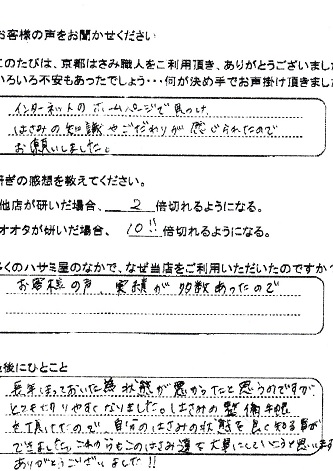 お客様の声をお聞かせください
このたびは、京都はさみ職人をご利用頂き、ありがとうございまし
いろいろ不安もあったでしょう・・・何が決め手でお声掛け頂きまし
インターネットのホームページで見つけ
はさみの知識やこだわりが感じられたので
お願いしました。
研ぎの感想を教えてください。
他店が研いだ場合、 2 倍切れるようになる。
オオタが研いだ場合、 10!! 倍切れるようになる。
多くのハサミ屋のなかで、なぜ当店をご利用いただいたのですか?
お客様の声、実績が多数あったので
最後にひとこと
長年ほっておいた為状態が悪かったと思うのですが
とても切りやすくなりました。はさみの整備手帳
も頂けたので、自分のはさみの状態を良く知る事が
できました。これからもこのはさみ達を大事にしていこうと思います
ありがとうございました!!